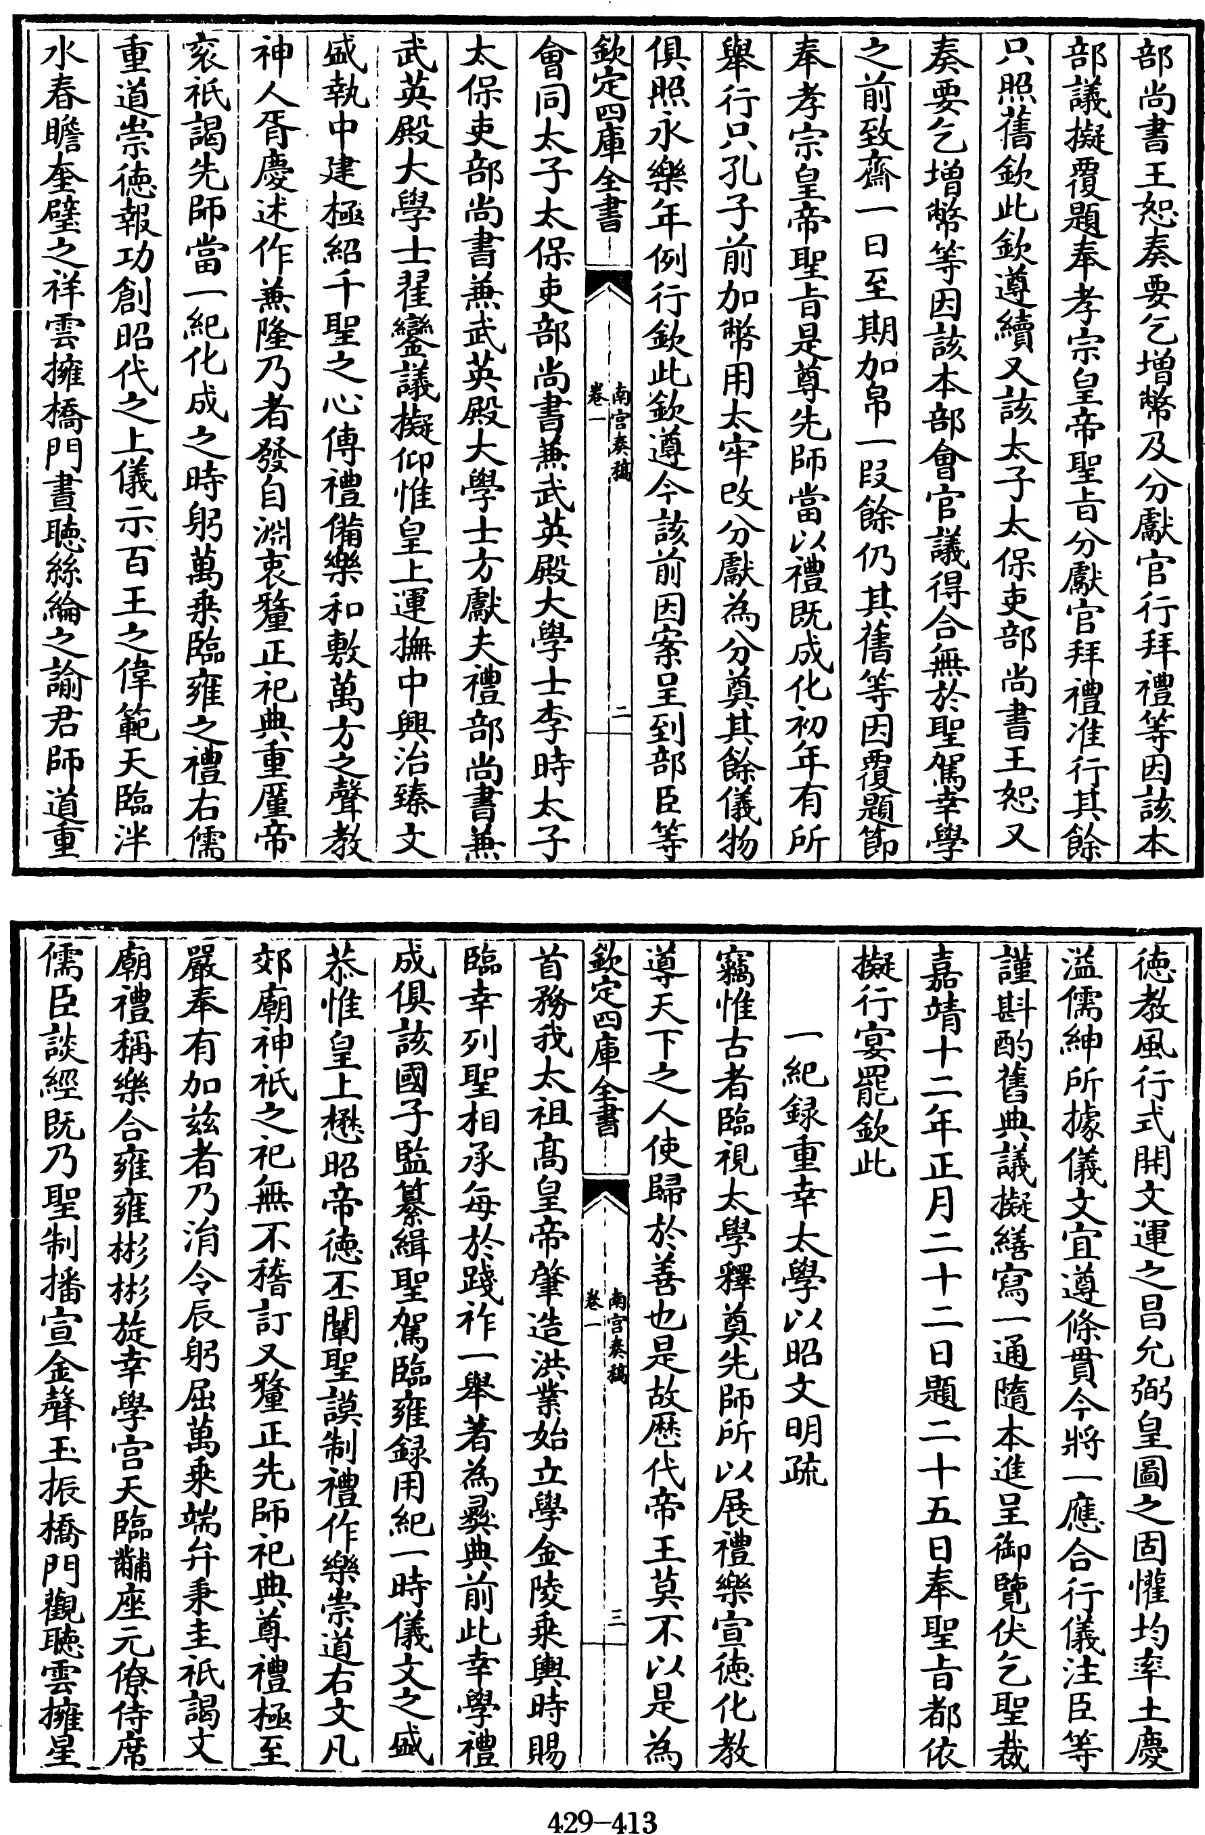 部尚書王恕奏要乞增幣及分獻官行拜禮等因該本
部議擬覆題奉孝宗皇帝聖旨分獻官拜禮准行其餘
只照舊欽此欽遵續又該太子太保吏部尚書王恕又
奏要乞增幣等因該本部會官議得合無於聖駕幸學
之前致齋一日至期加帛一段餘仍其舊等因覆題節
奉孝宗皇帝聖旨是尊先師當以禮既成化初年有所
舉行只孔子前加幣用太牢改分獻為分奠其餘儀物
俱照永樂年例行欽此欽遵今該前因案呈到部臣等
欽定四庫全書
南宫奏稿
卷一
二
會同太子太保吏部尚書兼武英殿大學士李時太子
太保吏部尚書兼武英殿大學士方獻夫禮部尚書兼
武英殿大學士翟鑾議擬仰惟皇上運撫中興治臻文
盛執中建極紹千聖之心傳禮備樂和敷萬方之聲教
神人胥慶述作兼隆乃者發自淵衷釐正祀典重厪帝
衮祇謁先師當一紀化成之時躬萬乘臨雍之禮右儒
重道崇德報功創昭代之上儀示百王之偉範天臨泮
水春瞻奎璧之祥雲擁橋門晝聽絲綸之諭君師道重
德教風行式開文運之昌允弼皇圖之固懽均率土慶
溢儒紳所據儀文宜遵條貫今將一應合行儀注臣等
謹斟酌舊典議擬繕寫一通隨本進呈御覽伏乞聖裁
嘉靖十二年正月二十二日題二十五日奉聖旨都依
擬行宴罷欽此
一紀錄重幸太學以昭文明疏
竊惟古者臨視太學釋奠先師所以展禮樂宣德化教
導天下之人使歸於善也是故歷代帝王莫不以是為
欽定四庫全書
南宫奏稿
卷一
三
首務我太祖高皇帝肇造洪業始立學金陵乘輿時賜
臨幸列聖相承每於踐祚一舉著為彝典前此幸學禮
成俱該國子監纂緝聖駕臨雍録用紀一時儀文之盛
恭惟皇上懋昭帝德丕闡聖謨制禮作樂崇道右文凡
郊廟神祇之祀無不稽訂又釐正先師祀典尊禮極至
嚴奉有加兹者乃涓令辰躬屈萬乘端弁秉圭祇謁文
廟禮稱樂合雍雍彬彬旋幸學宫天臨黼座元僚侍席
儒臣談經既乃聖制播宣金聲玉振橋門觀聽雲擁星
429-413